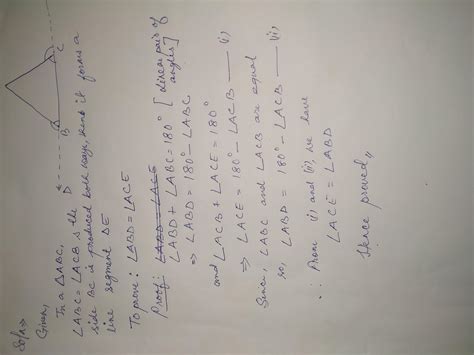 Soln→
Given,
In a ΔABC,
∠ABC = ∠ACB is the
side BC is produced both ways, it forms a
line segment DE
D B C
To prove : ∠ABD = ∠ACE
Proof: ∠ABD = ∠ACE
∠ABD + ∠ABC = 180° [linear pair of angles]
⇒ ∠ABD = 180° - ∠ABC
and ∠ACB + ∠ACE = 180°
⇒ ∠ACE = 180° - ∠ACB — (i)
Since, ∠ABC and ∠ACB are equal
so, ∠ABD = 180° - ∠ACB — (ii)
∴ From (i) and (ii), we have
∠ACE = ∠ABD
Hence proved,,